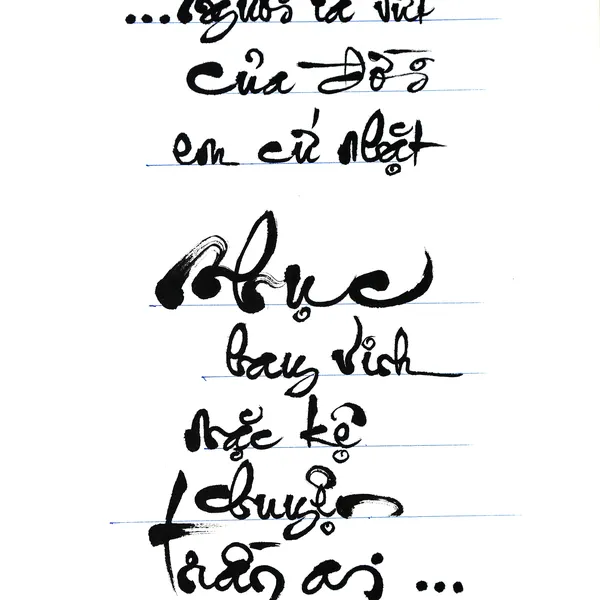 ...Người ta vứt
của đống
em cứ nhặt
Nhục
hay vinh
mặc kệ
chuyện
trần ai ...